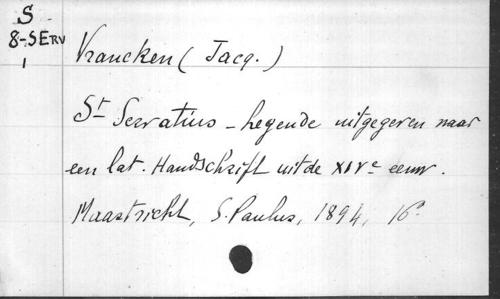 S
8-SERV
1
Vrancken ( Jacq. )
St Servatius - legende uitgegeven naar
een lat. Handschrift uit de XIVe eeuw.
Maastricht, S. Paulus, 1894, 16°